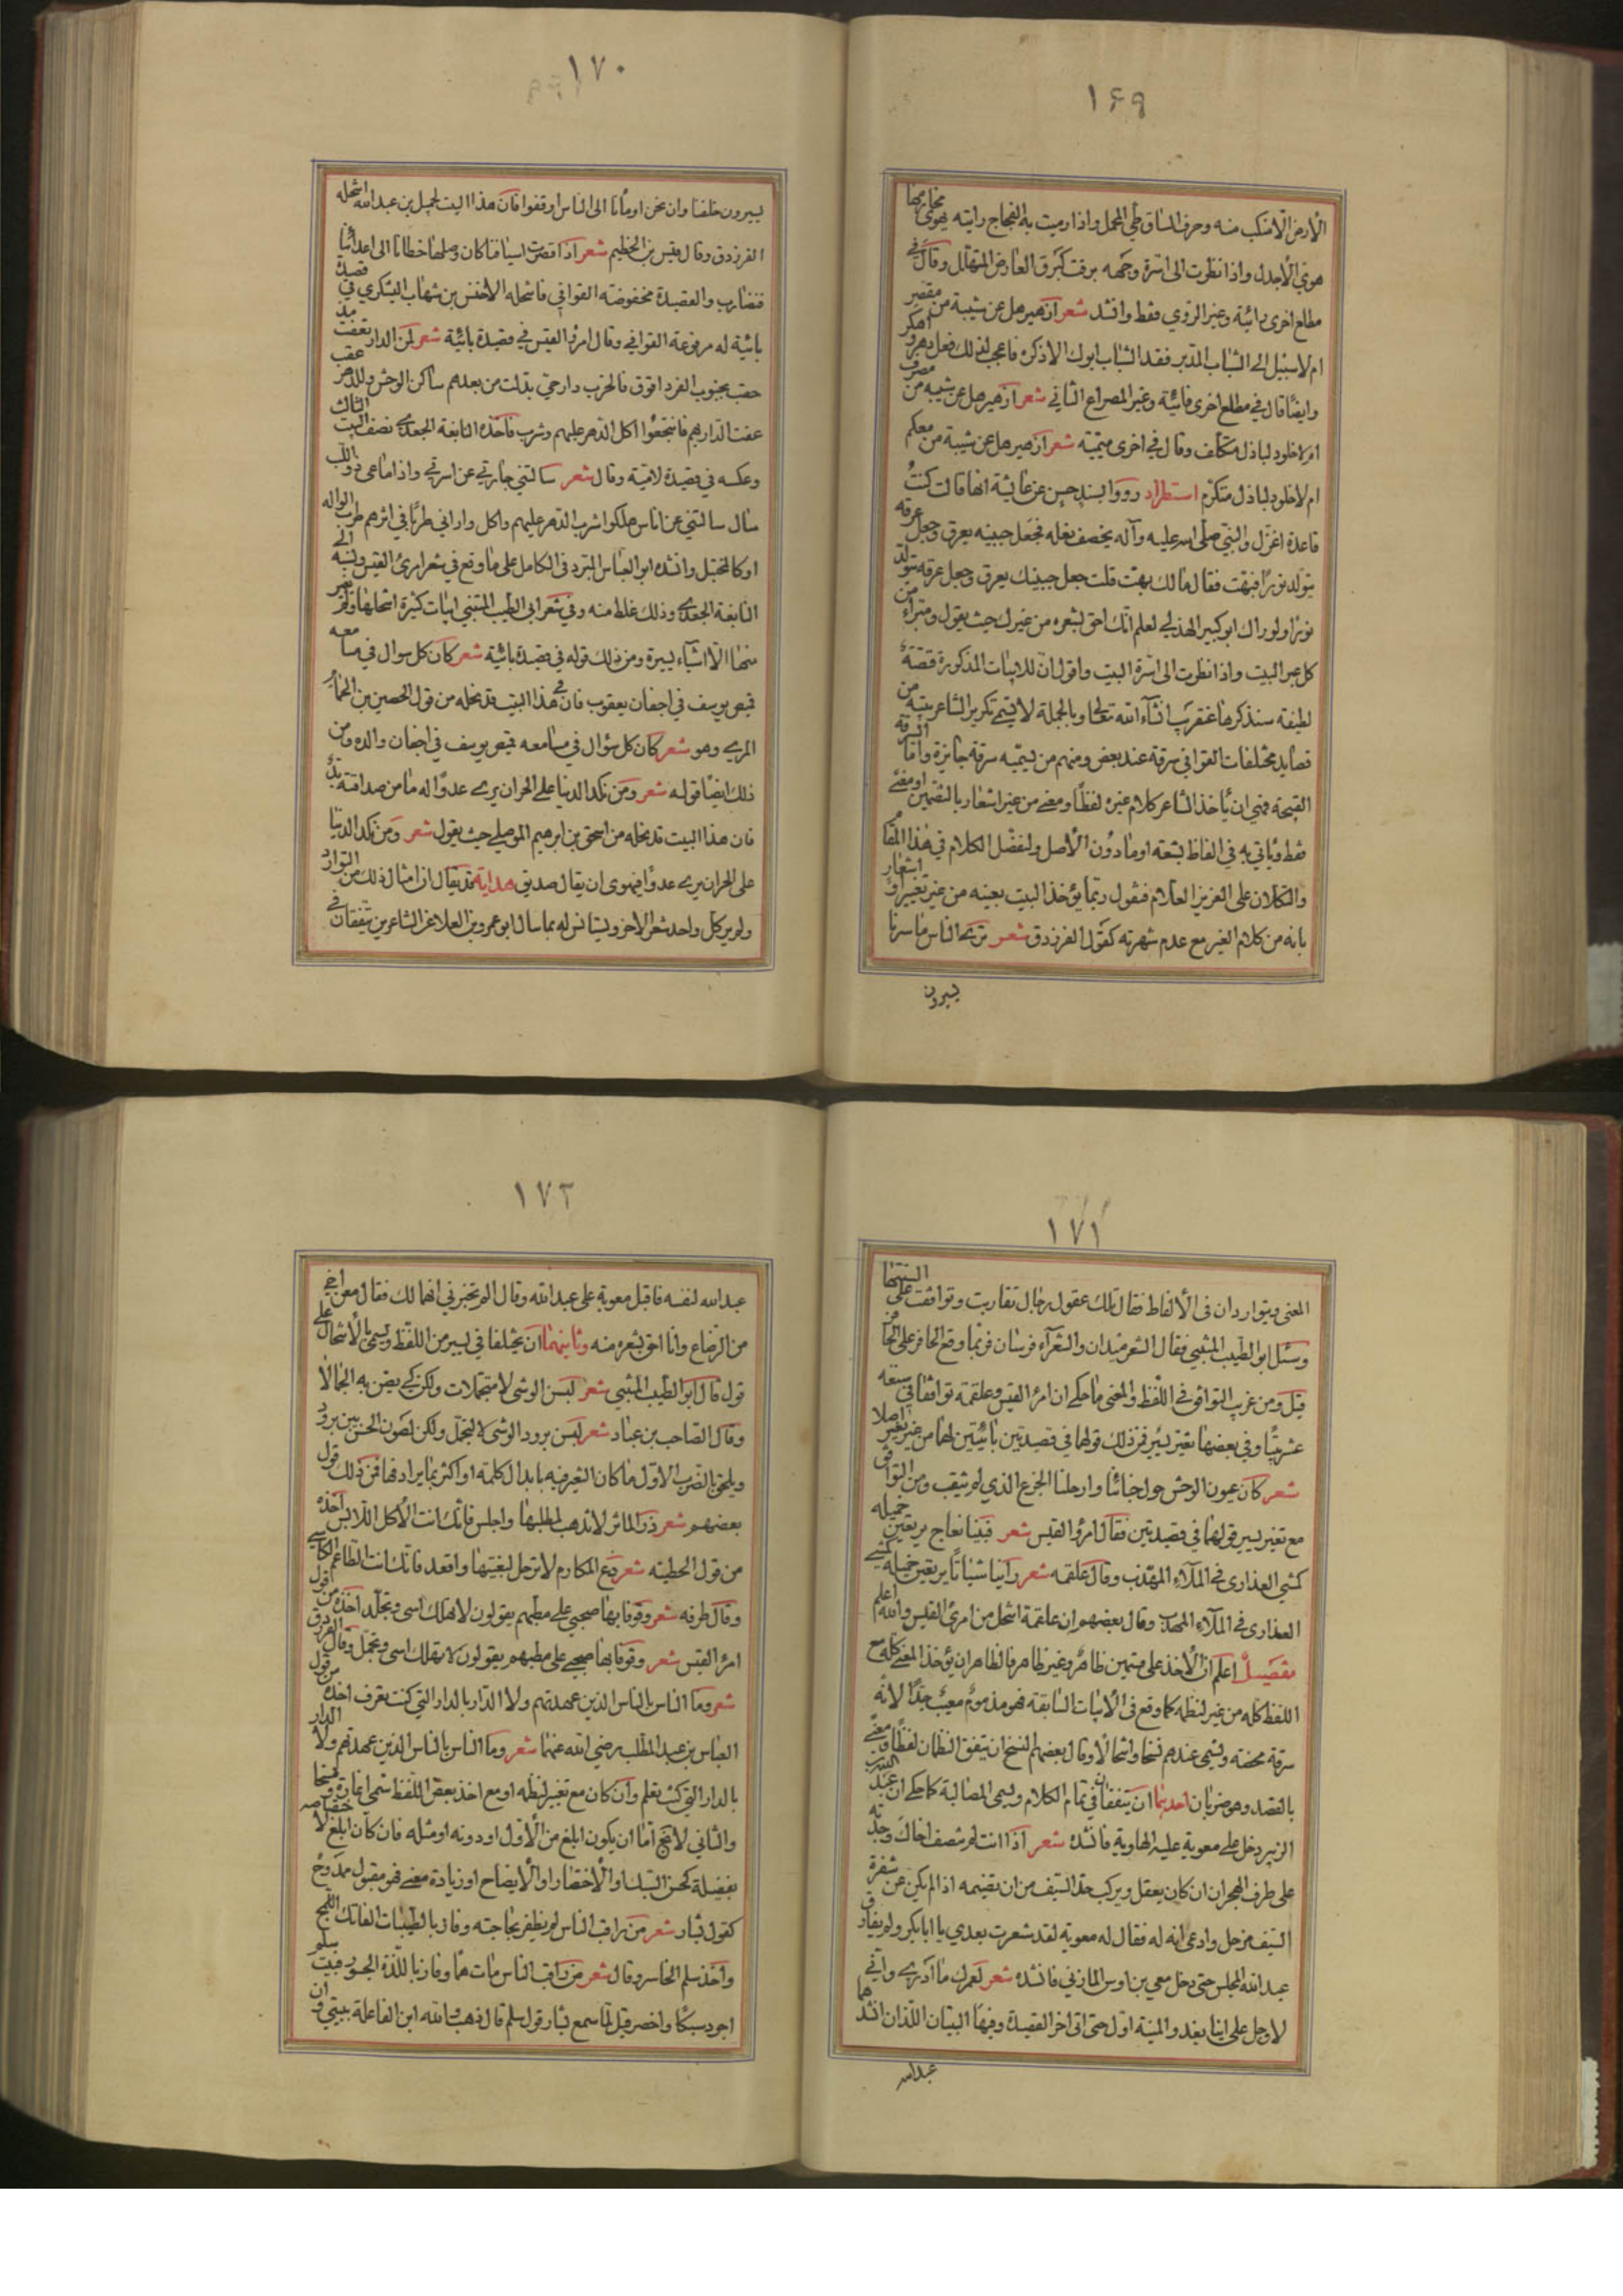 ١۶٩
الأرض الا منكب منه وحرف الساق طي المحمل واذا رميت به الفجاج رايته يهوى مخارمها
هوي الأجدل واذا نظرت الى اسرة وجهه برقت كبرق العارض المتهلل وقال في
مطلع اخرى رائية وغير الروي فقط وانشد شعر ازهير هل عن شيبة من مقصر
ام لا سبيل الى الشباب المدبر فقد الشباب ابوك الا ذكره فاعجب لذلك فعل دهر واهكر
وايضا قال في مطلع اخرى فائية وغير المصراع الثاني شعر ازهير هل عن شيبة من مصرف
ام لا خلود لباذل متكلف وقال في اخرى ميمية شعر ازهير هل عن شيبة من معكم
ام لا خلود لباذل متكرم استطراد روو ابسند حسن عن عائشة انها قالت كنت
قاعدة اغزل والنبي صلى الله عليه وآله يخصف نعله فجعل جبينه يعرق وجعل عرقه
يتولد نورا فبهت فقال مالك بهت قلت جعل جبينك يعرق وجعل عرقه يتولد
نورا ولو راك ابو كبير الهذلي لعلم انك احق بشعره من غيرك حيث يقول ومبراء من
كل غبر البيت واذا نظرت الى اسرة البيت واقول ان للابيات المذكورة قصة
لطيفة سنذكرها عنقرب انشآء الله تعالى وبالجملة لا يسمى تكرير الشاعر بيته من
قصايد مختلفات القوافي سرقة عند بعض ومنهم من يسميه سرقة جايزة واما السرقة
القبيحة فهي ان يأخذ الشاعر كلام غيره لفظا ومعنى من غير اشعار بالتضمين او معنى
فقط ويأتي به في الفاظ بشعة او ما دون الأصل ولنفصل الكلام في هذا المقام
والتكلان على العزيز العلام فنقول ربما يؤخذ البيت بعينه من غير تغيير او اشعار
بانه من كلام الغير مع عدم شهرته كقول الفرزدق شعر ترى الناس ما سرنا
يسيرون
١٧٠
يسيرون خلفنا وان نحن اومأنا الى الناس اوقفوا فان هذا البيت لجميل بن عبد الله انتحله
الفرزدق وقال قيس بن الخطيم شعر اذا قصرت اسيافنا كان وصلها خطانا الى اعدائنا
فنضارب والقصيدة مخفوضة القوافي فانتحله الاخنس بن شهاب اليشكري في قصيدة
بائية له مرفوعة القوافي وقال امرؤ القيس في قصيدة بائية شعر لمن الدار تعفت مذ
حقب بجنوب الفرد اقوق فالخرب دار حي بدلت من بعدهم ساكن الوحش وللدهر عقب
عفت الدار بهم فانتجعوا اكل الدهر عليهم وشرب فاخذه النابغة الجعدي نصف البيت الثالث
وعكسه في قصيدة لامية وقال شعر سالتني جارتي عن اسرتي واذا ما عي ذو اللب
سأل سالتني عن اناس هلكوا شرب الدهر عليهم واكل واراني طربا في اثرهم طرب الواله
او كالمختبل وانشده ابو العباس المبرد في الكامل على ما وقع في شعر امرئ القيس ونسبه الى
النابغة الجعدي وذلك غلط منه وفي شعر ابي الطيب المتنبي ابيات كثيرة انتحلها ولم يغير
منها الا اشياء يسيرة ومن ذلك قوله في قصيدة بائية شعر كان كل سوال في مسامعه
قميص يوسف في اجفان يعقوب فان في هذا البيت قد نحله من قول الحصين بن الحمام
المري وهو شعر كان كل سؤال في مسامعه قميص يوسف في اجفان والده ومن
ذلك ايضا قوله شعر ومن نكد الدنيا على الحر ان يرى عدوا له ما من صداقته بد
فان هذا البيت قد نحله من اسحق بن ابرهيم الموصلي حيث يقول شعر ومن نكد الدنيا
على الحر ان يرى عدوا فيهوى ان يقال صديق هداية قد يقال ان امثال ذلك من التوارد
ولو ير كل واحد شعر الاخر ويستانس له بما سال ابو عمرو بن العلا عن الشاعرين يتفقان في
١٧١
المعنى ويتواردان في الألفاظ فقال تلك عقول رجال تقاربت وتوافقت على السنتها
وسئل ابو الطيب المتنبي فقال الشعر ميدان والشعرآء فرسان فربما وقع الحافر على الحافر
قيل ومن غريب التوافق في اللفظ والمعنى ما حكي ان امرؤ القيس وعلقمة توافقا في سبعة
عشر بيتا وفي بعضها تغير يسير فمن ذلك قولهما في قصيدتين بائيتين لهما من غير تغير اصلا
شعر كان عيون الوحش حول خبائنا وارحلنا الجزع الذي لم يثقب ومن التوافق
مع تغير يسير قولهما في قصيدتين فقال امرؤ القيس شعر فبينا نعاج يرتعين خميله
كمشي العذارى في الملآء المهذب وقال علقمه شعر راينا شياتا يرتعين خميله كمشي
العذارى في الملآء المهدب وقال بعضهم ان علقمة انتحل من امرئ القيس والله اعلم
تفصيل اعلم ان الأخذ على قسمين ظاهر وغير ظاهر فالظاهر ان يؤخذ المعنى كله مع
اللفظ كله من غير لنظمه كما وقع في الأبيات السابقة فهو مذموم معيب جدا لانه
سرقة محضه ويسمى عندهم نسخا وانتحالا وقال بعضهم النسخ ان يتفق النظمان لفظا ومعنى
بالقصد وهو ضربان احدهما ان يتفقا في تمام الكلام ويسمى المصالبة كما حكي ان عبد الله بن
الزبير دخل على معوية عليه الهاوية فانشده شعر اذا انت لم تنصف اخاك وجدته
على طرف الهجران ان كان يعقل ويركب حد السيف من ان تضيمه اذا لم يكن عن شفرة
السيف مزحل وادعى انه له فقال له معوية لقد شعرت بعدي يا ابا بكر ولم يفارق
عبد الله المجلس حتى دخل معي بن اوس المازني فانشده شعر لعمرك ما ادري واني
لاوجل على اينا يغدو المنية اول حتى اتى اخر القصيدة وفيها البيتان اللذان انشدهما
عبد الله
١٧٢
عبد الله لنفسه فاقبل معوية على عبد الله وقال الم تخبرني انهما لك فقال معن اخي
من الرضاع وانا احق بشعره منه وثانيهما ان يختلفا في يسير من اللفظ ويسمى بالأنتحال على
قول قال ابو الطيب المتنبي شعر لبسن الوشى لا متجملات ولكن كي يصن به الجمالا
وقال الصاحب بن عباد شعر لبسن برود الوشى لا لتجمل ولكن لصون الحسن بين برود
ويلحق بالضرب الاول ما كان التغير فيه بابدال كلمة او اكثر بما يرادفها فمن ذلك قول
بعضهم شعر ذر المآثر لا تذهب لمطلبها واجلس فانك انت الأكل اللابس اخذه
من قول الحطيئه شعر دع المكارم لا ترحل لبغيتها واقعد فانك انت الطاعم الكاسي
وقال طرفه شعر وقوفا بها صحبي على مطيهم يقولون لا تهلك اسى وتجلد اخذه من قول
امرؤ القيس شعر وقوفا بها صحبي على مطيهم يقولون لا تهلك اسى وتجمل وقال الفرزدق
شعر وما الناس بالناس الذين عهدتهم ولا الدار بالدار التي كنت تعرف اخذه من قول
العباس بن عبد المطلب رضي الله عنهما شعر وما الناس بالناس الذين عهدتهم ولا الدار
بالدار التي كنت تعلم وان كان مع تغير لنظمه او مع اخذ بعض اللفظ سمي اغارة ومسخا
والثاني لا يخ اما ان يكون ابلغ من الأول او دونه او مثله فان كان ابلغ لاختصاصه
بفضيلة كحسن السبك او الأختصار او الأيضاح او زيادة معنى فهو مقبول ممدوح
كقول بشار شعر من راقب الناس لم يظفر بحاجته وفاز بالطيبات الفاتك اللهج
واخذ سلم الخاسر وقال شعر من راقب الناس مات هما وفاز باللذة الجسور فبيت سلم
اجود سبكا واخصر قيل لما سمع بشار قول سلم قال ذهب والله ابن الفاعلة ببيتي وان